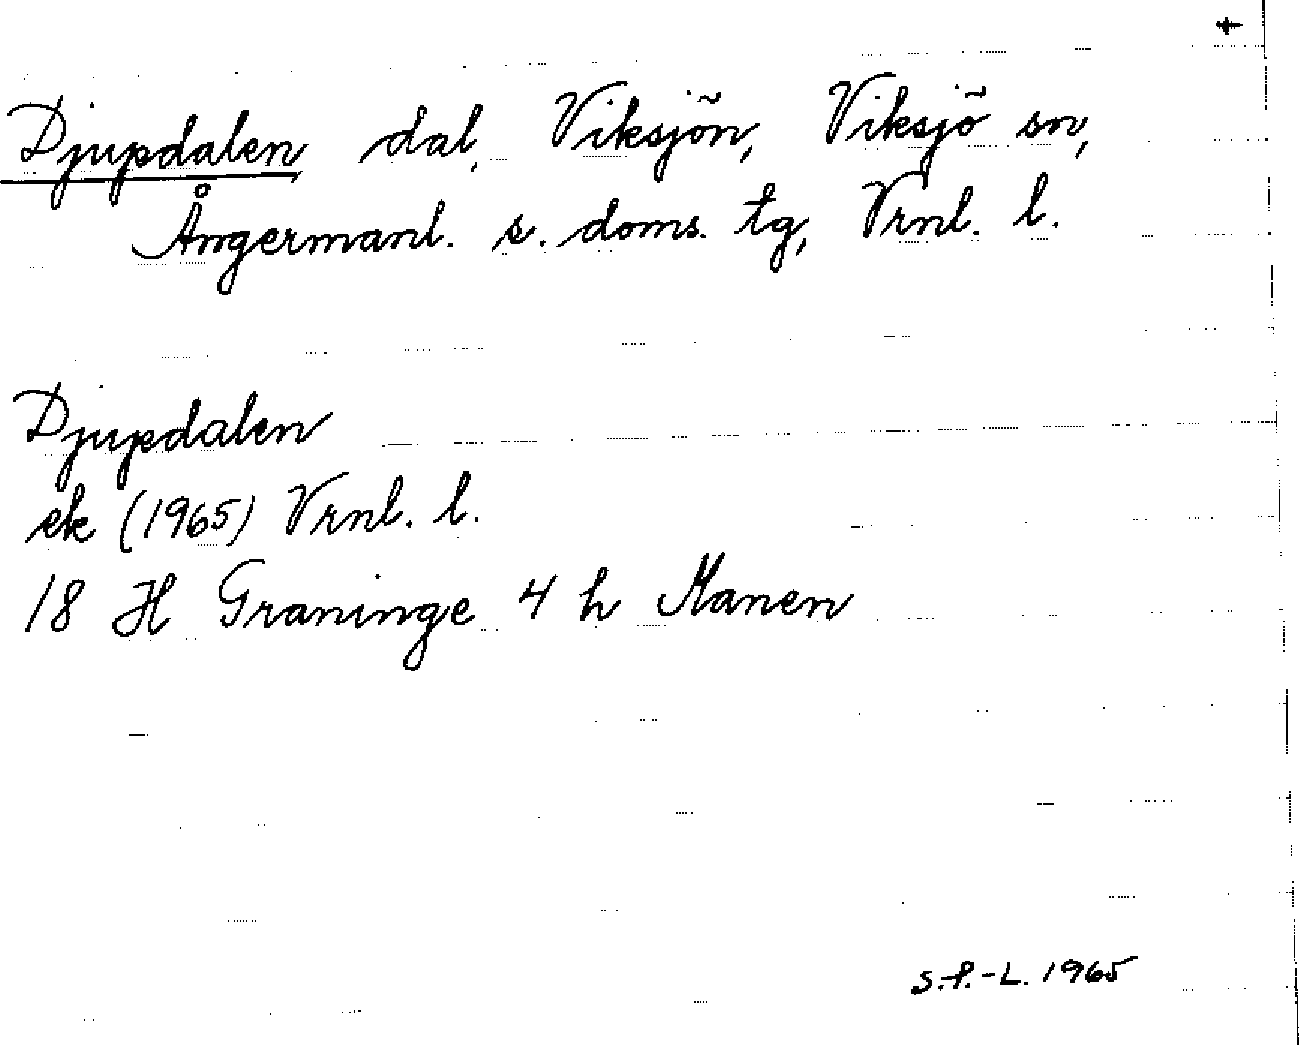 Djupdalen, dal, Viksjön, Viksjö sn,
Ångermanl. s. doms. tg, Vrnl. l.
Djupdalen
ek (1965) Vrnl. l.
18 H Graninge 4 h Manen
S.P.-L. 1965